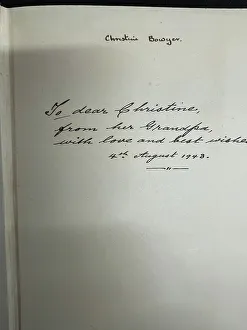 Christine Bowyer.
To dear Christine,
from her Grandpa,
with love and best wishes
4th August 1943.